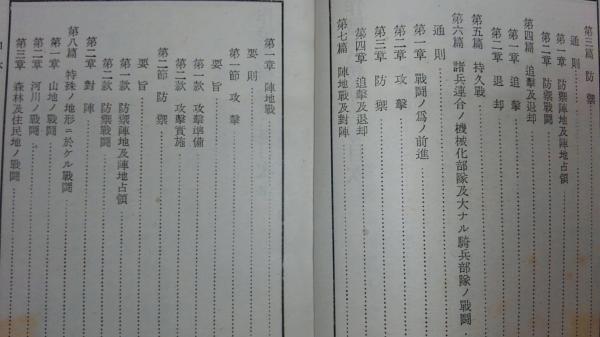 第三篇 防禦
通則
第一章 防禦陣地及陣地占領
第二章 防禦戰鬪
第四篇 追擊及退却
第一章 追擊
第二章 退却
第五篇 持久戰
第六篇 諸兵連合ノ機械化部隊及大ナル騎兵部隊ノ戰鬪
通則
第一章 戰鬪ノ爲ノ前進
第二章 攻擊
第三章 防禦
第四章 追擊及退却
第七篇 陣地戰及對陣
第一章 陣地戰
要則
第一節 攻擊
要旨
第一款 攻擊準備
第二款 攻擊實施
第二節 防禦
要旨
第一款 防禦陣地及陣地占領
第二款 防禦戰鬪
第二章 對陣
第八篇 特殊ノ地形ニ於ケル戰鬪
第一章 山地ノ戰鬪
第二章 河川ノ戰鬪
第三章 森林及住民地ノ戰鬪